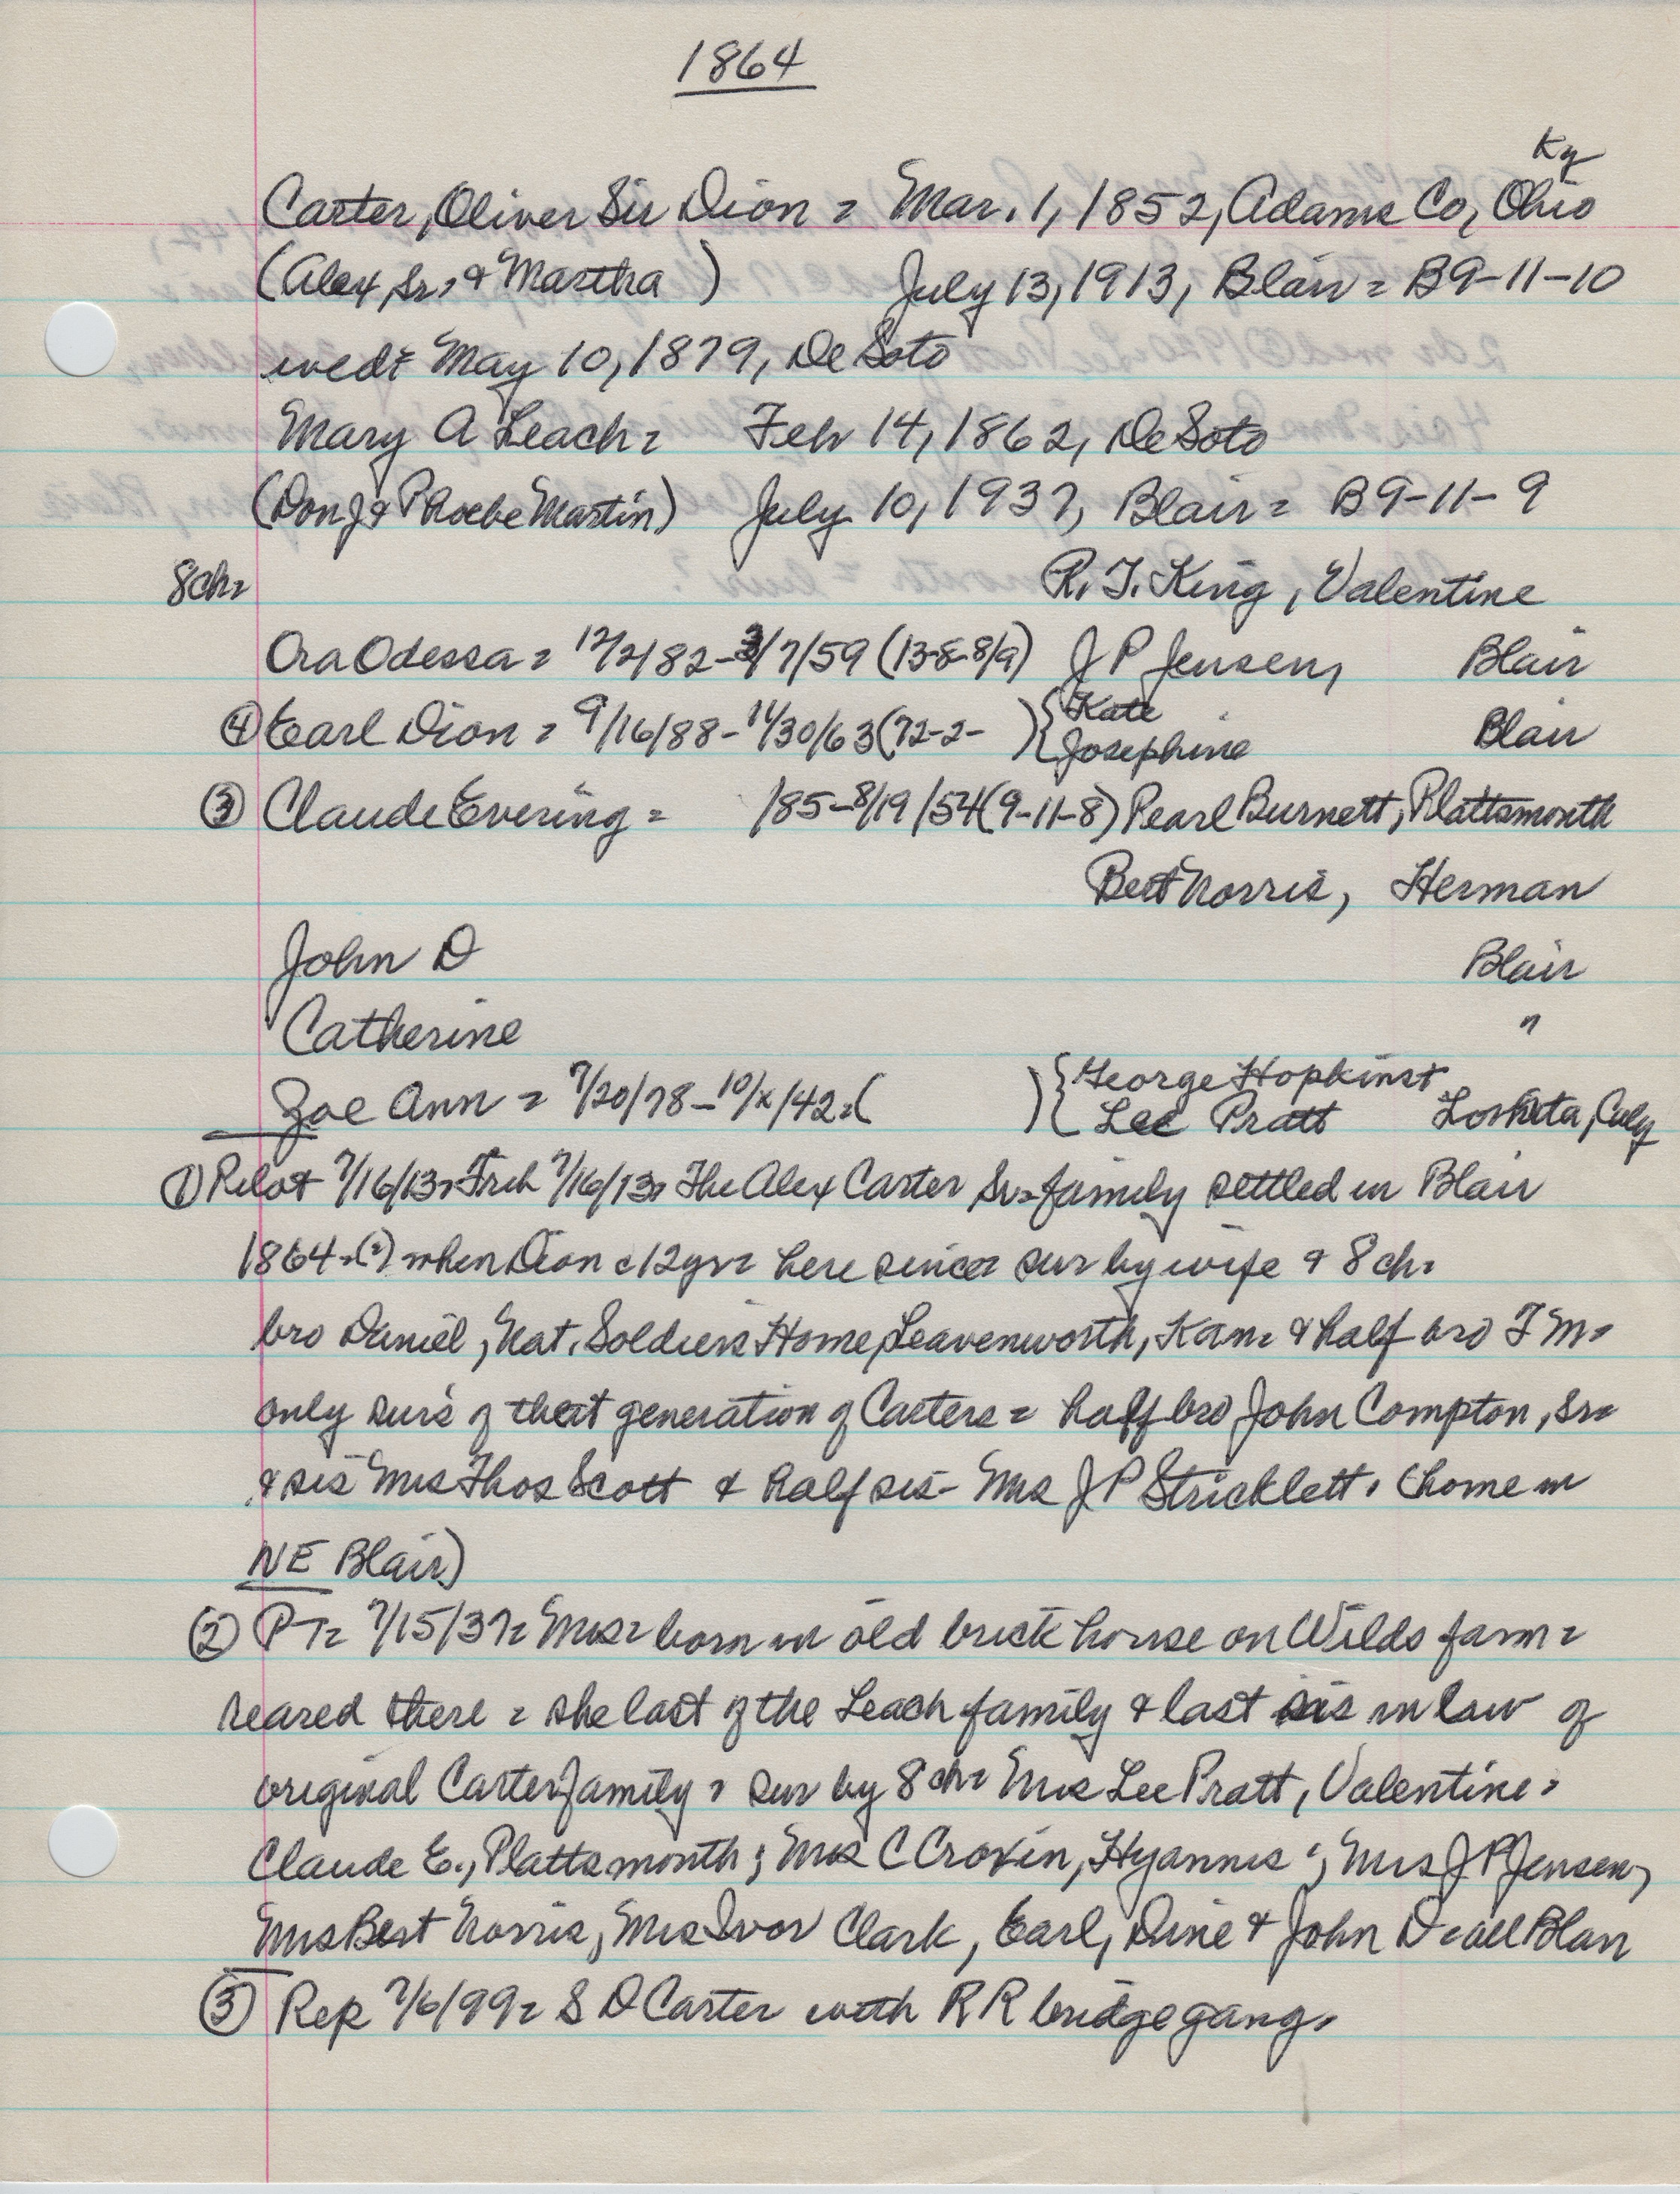 1864
Ky
Carter, Oliver Sir Dion = Mar. 1, 1852, Adams Co, Ohio
(Alex, Sr. & Martha ) July 13, 1913, Blair = B9-11-10
wed: May 10, 1879, De Soto
Mary A Leach = Feb 14, 1862, De Soto
(Don J & Phoebe Martin) July 10, 1937, Blair = B9-11-9
8ch= R. T. King, Valentine
Ora Odessa = 12/2/82-3/7/59 (13-8-8/9) J P Jensen, Blair
④ Earl Dion = 9/16/88-11/30/63 (72-2- ) { Kate Blair
Josephine
③ Claude Evering = /85-8/19/54 (9-11-8) Pearl Burnett, Plattsmouth
Bert Norris, Herman
John D Blair
Catherine "
Zoe Ann = 7/20/78-10/x/42=( ) { George Hopkins+
Lee Pratt
① Pilot 7/16/13= Trib 7/16/13= The Alex Carter Sr= family settled in Blair
1864=(?) when Dion c 12yr= here since= sur by wife & 8 ch=
bro Daniel, Nat. Soldiers Home, Leavenworth, Kan= & half bro T M=
only surs of that generation of Carters = half bro John Compton, Sr=
& sis Mrs Thos Scott & half sis- Mrs J P Stricklett. (home in
NE Blair)
② PT= 7/15/37= Mrs= born in old brick house on Wilds farm=
reared there = she last of the Leach family & last sis in law of
original Carter family = sur by 8 ch= Mrs Lee Pratt, Valentine=
Claude E., Plattsmouth; Mrs C Crovin, Hyannis; Mrs J P Jensen,
Mrs Bert Norris, Mrs Ivor Clark, Earl, Dine & John D = all Blair
③ Rep 7/6/99= S D Carter with RR bridge gang.